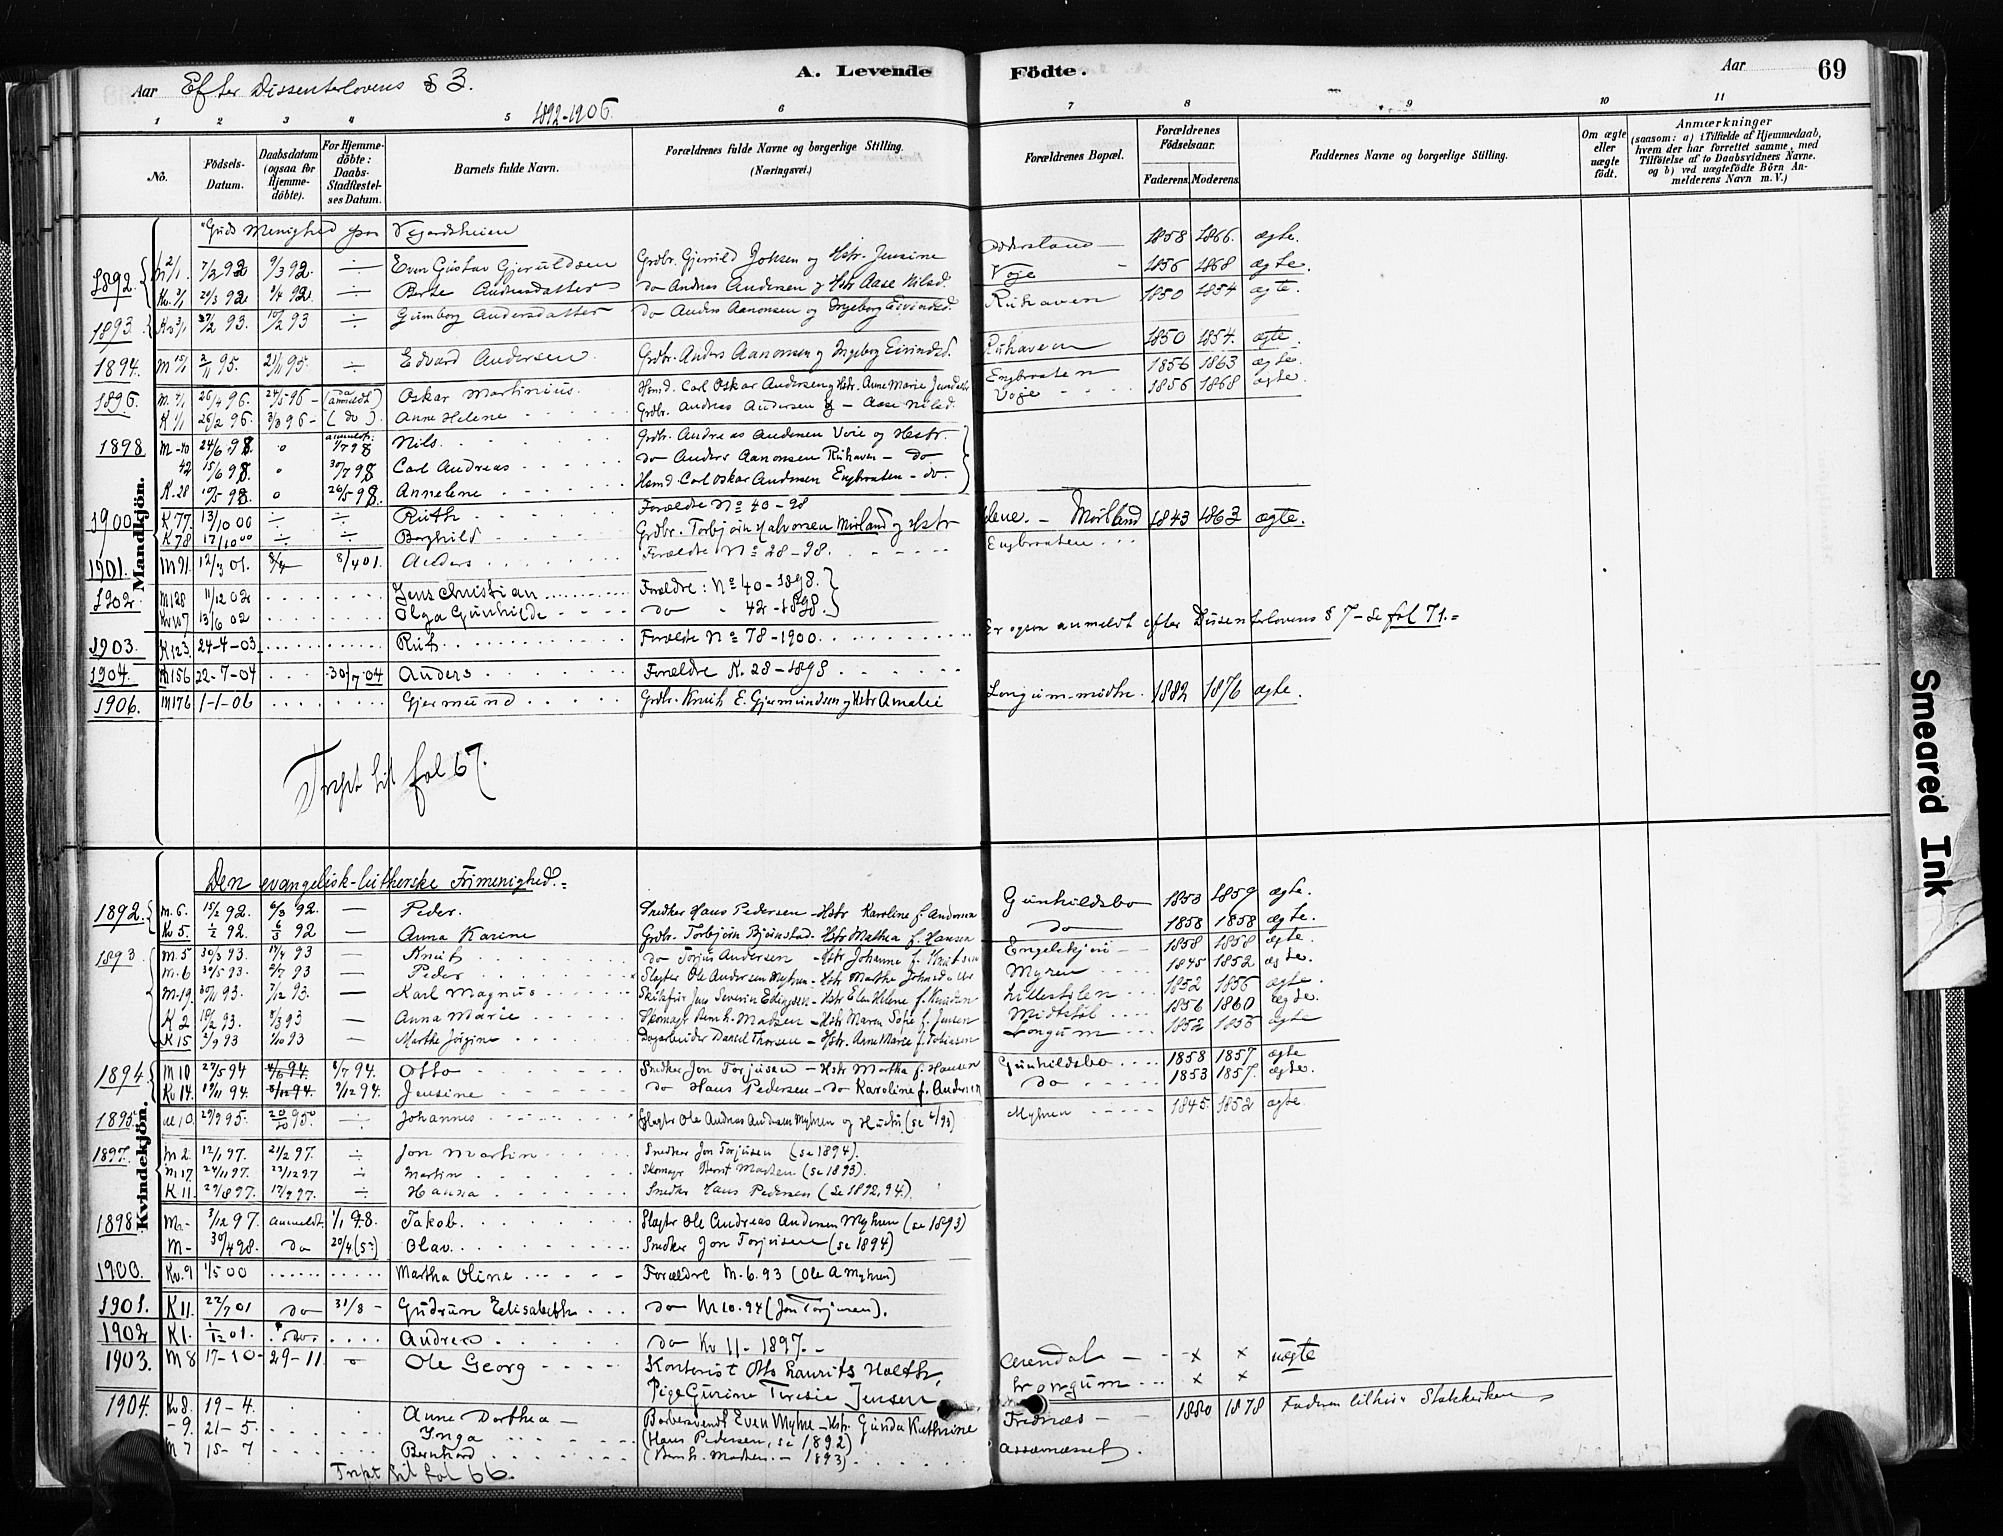 Aar Efter Dissenterlovens § 3. A. Levende Födte. Aar 69
1892-1906.
1 2 3 4 5 6 7 8 9 10 11
No.
Födsels-Datum.
Daabsdatum (ogsaa for Hjemmedöbte).
For Hjemmedöbte: Daabs-Stadfæstelses Datum.
Barnets fulde Navn.
Forældrenes fulde Navne og borgerlige Stilling. (Næringsvei.)
Forældrenes Bopæl.
Forældrenes Födselsaar. Faderens. Moderens.
Faddernes Navne og borgerlige Stilling.
Om ægte eller uægte født.
Anmærkninger (saasom: a) i Tilfælde af Hjemmedaab, hvem der har forrettet samme, med Tilföielse af to Daabsvidners Navne. og b) ved uægtefödte Börn Anmelderens Navn m. V.)
Mandkjön.
Guds Menighed paa Vegardsheien
1892. 7/3 92 9/3 92. ÷ Even Gustav Gjeruldsen Grdbr. Gjeruld Johsen og Hstr. Jensine 1858 1866. ægte.
Kv. 2/1 92 1/4 92 ÷ Berte Andreasdatter do Andreas Andersen og Hstr Aase Nilsd. Voje 1856 1868 ægte.
1893. Kv 3/1 93. 10/2 93 ÷ Gumborg Andersdatter do Anders Aanonsen og Ingeborg Eivindsd. Ruhaven 1850 1854 ægte.
1894. M 2/11 95. 21/11 95. ÷ Edvard Andersen. Grdbr. Anders Aanonsen og Ingeborg Eivindsd. Ruhaven 1850 1854. ægte
1896. 26/4 96. 24/5 96 - (da anmeldt) Oskar Martinius. Hsmd. Carl Oskar Andersen og Hstr. Anne Marie Jensdatter Engbraaten 1856 1863 ægte.
K 1/1 26/2 96. 3/3 96 - (do). Anne Helene Grdbr. Andreas Andersen og - Aase Nilsd. Voje 1856 1868 ægte.
1898 M-40 24/6 98 o 1/7 98 Nils. Grdbr. Andreas Andersen Voie og Hstr.
42 15/6 98. o 30/7 98 Carl Andreas do Anders Aanonsen Ruhaven - do
K. 28 10/5 98. o 26/5 98. Annelene Hsmd Carl Oskar Andersen Engbraaten - do.
1900 K 77. 13/10 00 ÷ ÷ Ruth Forældre No 40-98
K 78 12/10 00 ÷ ÷ Borghild Grdbr. Torbjörn Halvorsen Mörland og Hstr lene. - Mörland 1843 1863 ægte.
1901. M 91. 12/3 01. 8/4 01. Anders Forældre No 28-98. Engbraaten
1902 M 128 11/12 02 Jens Christian Forældre: No 40-1898.
Kv 107 13/6 02 Olga Gunhilde do " 42-1898.
1903. K 123. 24-4-03 Rut Forældre No 78-1900. Er ogsaa anmeldt efter Dissenterlovens § 7 - Se fol 71.=
1904. M 156 22-7-04 30/7 04 Anders Forældre K. 28-1898
1906. M 176 1-1-06 Gjermund Grdbr. Knut E. Gjermundsen og Hstr Amalie Longum-midtre. 1882 1876 ægte.
Trspt til fol 67.
Kvindekjön.
Den evangelisk-lutherske Frimenighed.=
1892. M. 6. 15/2 92. 6/3 92. — Peder. Snedker Hans Pedersen - Hstr Karoline f. Andersen Gunhildsbo 1853 1859 ægte.
Kv 5. 1/2 92. 6/3 92 — Anna Karine Grdbr. Torbjörn Bjönstad - Hstr Mathea f. Hansen do 1858 1858 ægte.
1893 M. 5 30/3 93. 14/4 93 — Knut do Torjus Andersen - Hstr Johanne f. Knudsen 1858 1858 ægte.
M. 6 30/5 93. 2/7 93 — Peder Slagter Ole Andersen Myhren - Hstr Mathe Johnsdatter Myren 1845 1852 ægte.
M-19. 30/11 93. 7/12 93. — Karl Magnus Jens Severin - Hstr Elen Helene f. Knudsen Lillestölen 1852 1856 ægte.
K 2 18/2 93. 8/3 93 — Anna Marie Skomagr Bernh. Madsen - Hstr Maren Sofie f. Jensen Midtstöl 1856 1860 ægte.
K 15 2/9 93 1/10 93 — Marthe Jörgine Dagarbeider Daniel Thorsen - Hstr. Anne Marie f. Tobiasen Longum 1852 1855 ægte
1894 M 10 27/5 94 8/6 94 6/7 94. Otto Snedker Jon Torjusen - Hstr Martha f. Hansen Gunhildsbo 1858 1857 ægte
Kv 14. 19/11 94. 5/12 94. 7/12 94. Jensine do Hans Pedersen - do Karoline f. Andersen do 1853 1857. ægte.
1895. M 10. 29/9 95. 20/10 95. ÷ Johannes Slagter Ole Andreas Andersen Myhren og Hustru (se 6/93) Myhren 1845. 1852 ægte.
1897. M 2. 12/1 97. 21/2 97. ÷ Jon Martin Snedker Jon Torjusen (se 1894).
M 17. 24/11 97. 22/12 97 ÷ Martin Skomagr Bernt Madsen (se 1893).
K 11. 29/8 97. 19/9 97. ÷ Hanna Snedker Hans Pedersen (Se 1892, 94).
1898 M.- 3/12 97. anmeldt. 1/1 98. Jakob. Slagter Ole Andreas Andersen Myhren (se 1893)
M- 30/4 98. do 20/4 (5?) Olav. Snedker Jon Torjusen (se 1894)
1900. Kv. 9 1/5 00 Martha Oline Forældre M-6. 93 (Ole A Myhren)
1901. K 11. 22/7 01 do 31/8 - Gudrun Elisabeth do M 10. 94 (Jon Torjusen).
1902 K 1. 1/12 01. do. Andrea do Kv 11-1897.-
1903. M 8 17-10- 29-11. o Ole Georg Kontorist Otto Laurits Holth, Arendal - x x uægte
Pige Gurine Teresie Jensen Longum x x
1904. Kv 8. 19-4. Anne Dorthea Barbersvendt Even Myhre - Hstr. Gunda Kathrine Frednæs - 1880 1878 Faderen tilhör Statskirken
-9. 21-5. Inga (Hans Pedersen, se 1892) Assævasset
M 7 15-7 Bernhard (Bernh. Madsen. - 1893).
Trspt til fol 66.
Smeared Ink